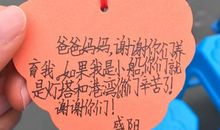 爸爸妈妈,谢谢你们养
育我,如果我是小船,你们就
是灯塔和港湾,你们辛苦了!
谢谢你们!
盛阳